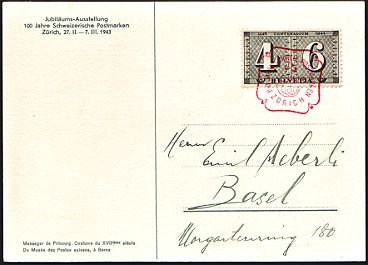 Jubiläums-Ausstellung
100 Jahre Schweizerische Postmarken
Zürich, 27. II. – 7. III. 1943
4 6
HELVETIA
ZÜRICH
Herrn
Emil Aeberli
Basel
Morgartenring 180
Messager de Fribourg. Costume du XVIIIème siècle
Du Musée des Postes suisses, à Berne